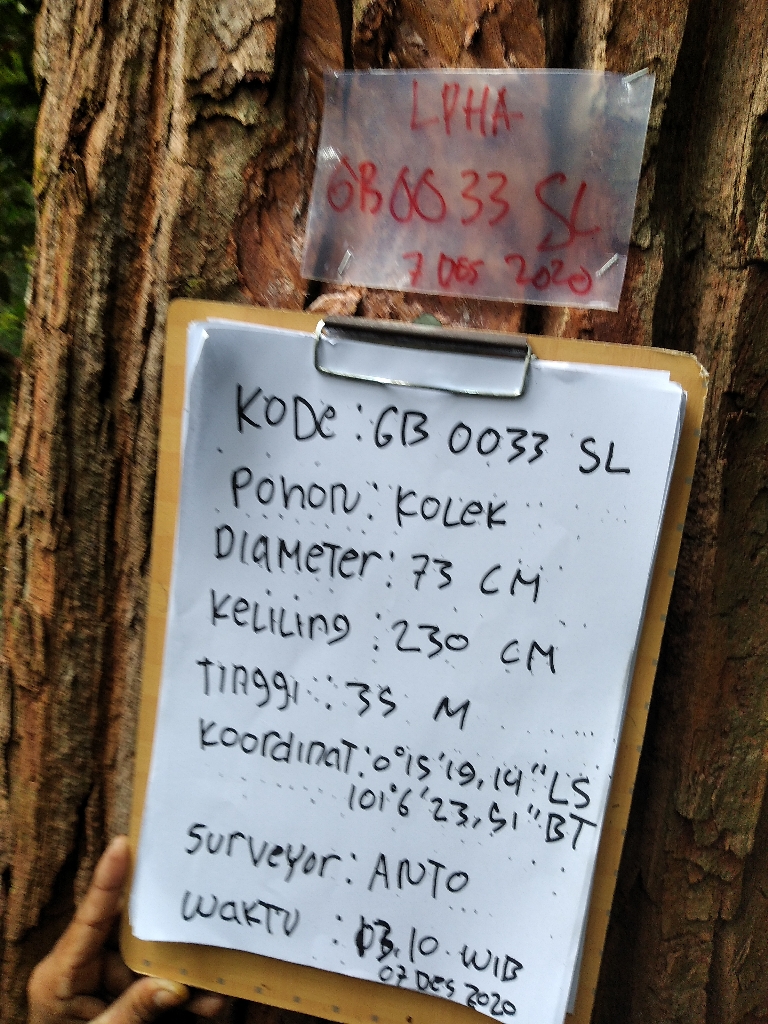 LPHA-
GB0033 SL
7 DES 2020
KODe : GB 0033 SL
Pohon : KOLEK
DIAMETer : 73 CM
KeLILIng : 230 CM
TInggI : 35 M
KoordInAT : 0°15'19,14" LS
101°6'23,51" BT
Surveyor : ANTO
WAKTU : 13.10 WIB
07 DES 2020